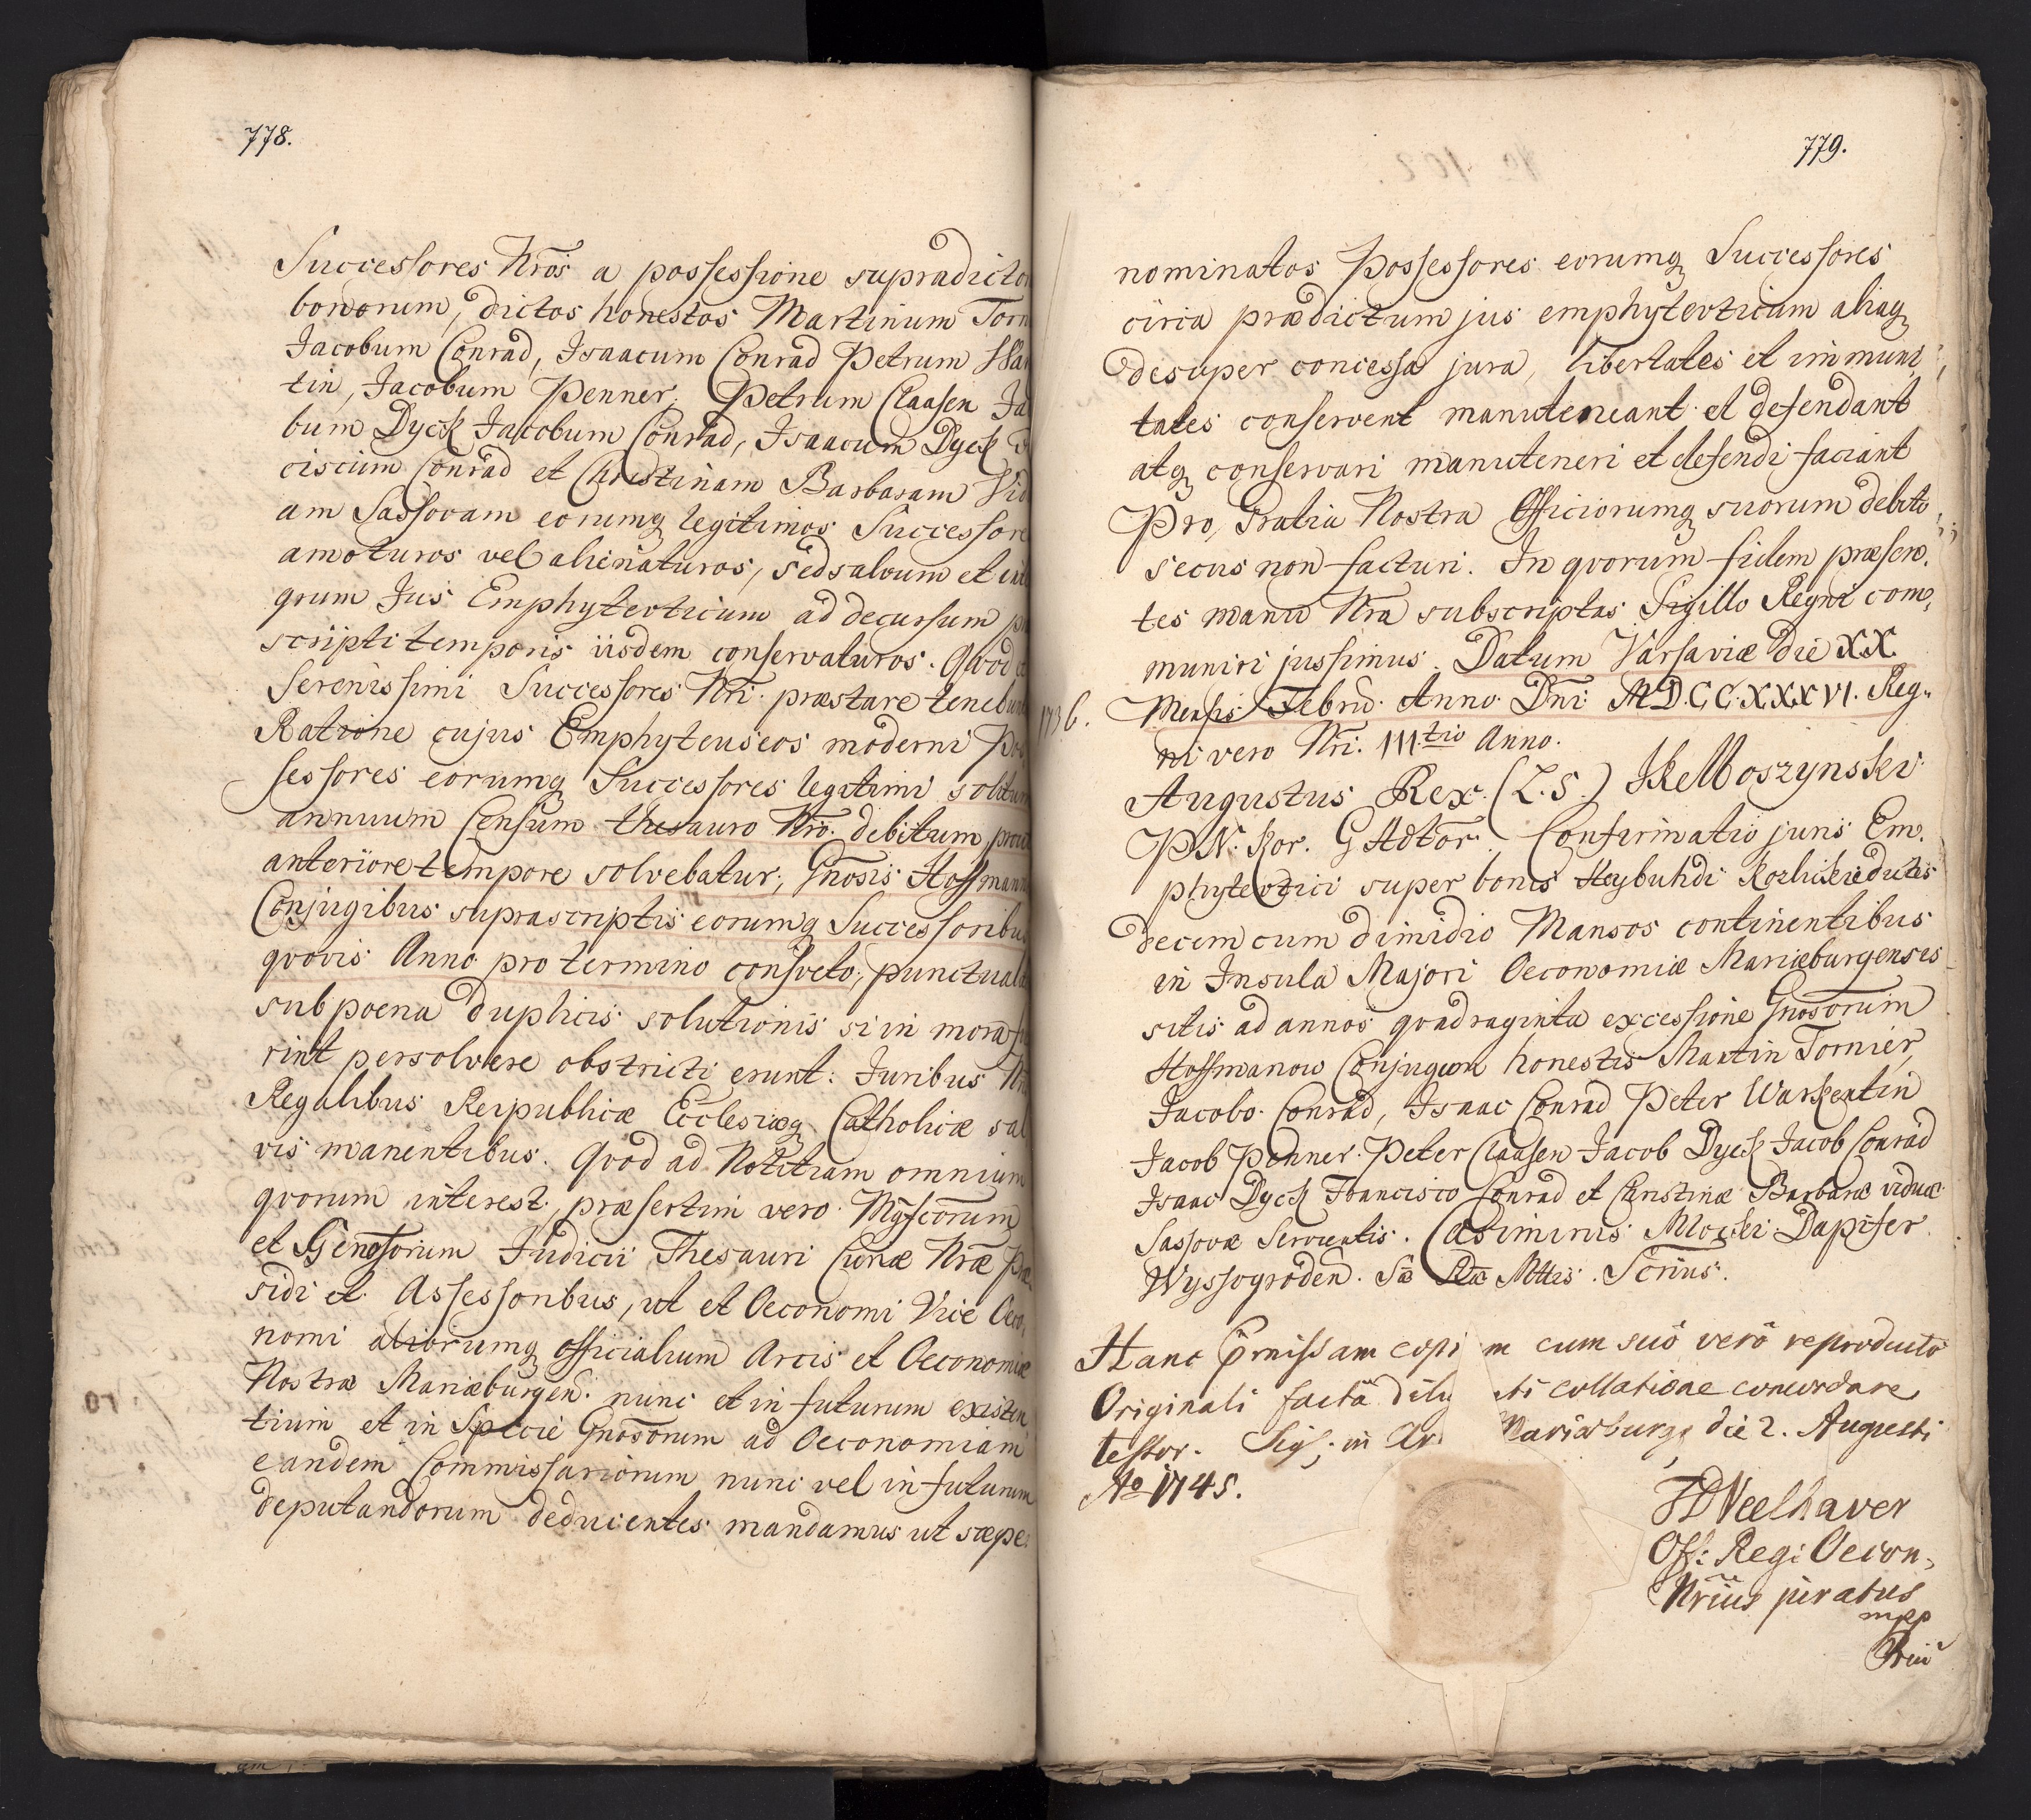 778.
Successores Nros a possessione supradicto
bonorum, dictos honestos Martinum Torn
Jacobum Conrad, Isaacum Conrad Petrum War
tin, Jacobum Penner, Petrum Claasen Ja
bum Dyck Jacobum Conrad, Isaacum Dyck
ciscum Conrad et Christinam Barbaram Vid
am Sassovam eorumq legitimos Successore
amoturos vel alienaturos, sed salvum et int
grum Jus Emphytevticum ad decursum
scripti temporis iisdem conservaturos. Qvod et
Serenissimi Successores Nri præstare tenebunt
Ratione cujus Emphyteuseos moderni Pos
sessores eorumq Successores legitimi solitum
annuum Censum thesauro Nro. debitum prout
anteriore tempore solvebatur, Gnosis Hoffmann
Conjugibus suprascriptis eorumq Successoribus
qvovis Anno pro termino consveto, punctual
sub poena duplicis solutionis si in mora fu
rint persolvere obstricti erunt: Juribus Nris
Regalibus Reipublicæ Ecclesiæq Catholicæ sal
vis manentibus. Qvod ad Notitiam omnium
qvorum interest, præsertim vero Mgfcorum
et Generosorum Judicii Thesauri Curiæ Nræ Præ
sidi et Assessoribus, ut et Oeconomi Vice Oeco,
nomi aliorumq officialium Arcis et Oeconomiæ
Nostræ Mariæburgen: nunc et in futurum existen
tium et in Specie Gnosorum ad Oeconomiam
eandem Commissariorum nunc vel in futurum
deputandorum deducentes mandamus ut sæpe:
779.
nominatos Possessores eorumq Successores
circa prædictum jus emphytevticum aliaq
desuper concessa jura, libertates et immuni,
tates conservent manuteneant et defendant
atq conservari manuteneri et defendi faciant
Pro, Gratia Nostra Officiorumq suorum debito
secus non facturi. In qvorum fidem præsen,
tes manu Nra subscriptas Sigillo Regni com,
muniri jussimus. Datum Varsaviæ die XX.
1736. Mensis Febru. Anno Dni MDCCXXXVI. Reg,,
ni vero Nri. III.tio Anno.
Augustus Rex. (L.S.) JKelloszynski
P.N. Kor. G Adtor. Confirmatio juris Em,
phytevtici super bonis Heybuhdi Kozliski dictis
decem cum dimidio Mansos continentibus
in Insula Majori Oeconomiæ Mariæburgensis
sitis ad annos qvadraginta ex cessione Gnosorum
Hoffmanow Conjugum honestis Martin Tornier,
Jacobo Conrad, Isaac Conrad Peter Warkentin
Jacob Penner Peter Claasen Jacob Dyck Jacob Conrad
Isaac Dyck Francisco Conrad et Christinæ Barbaræ viduæ
Sassovæ Servientis. Casimirus Mlocki Dapifer
Wyssogroden. Sæ Ræ Mttis. Scrius.
Hanc præmissam copi m cum suô verô reproductô
Originali factâ dilg nti collatione concordare
testor. Sig; in Ar Mariæburg, die 2. Augusti
Ao 1745.
JDNeelhaver
Off: Regi: Oecon,
Nrius juratus
mpp